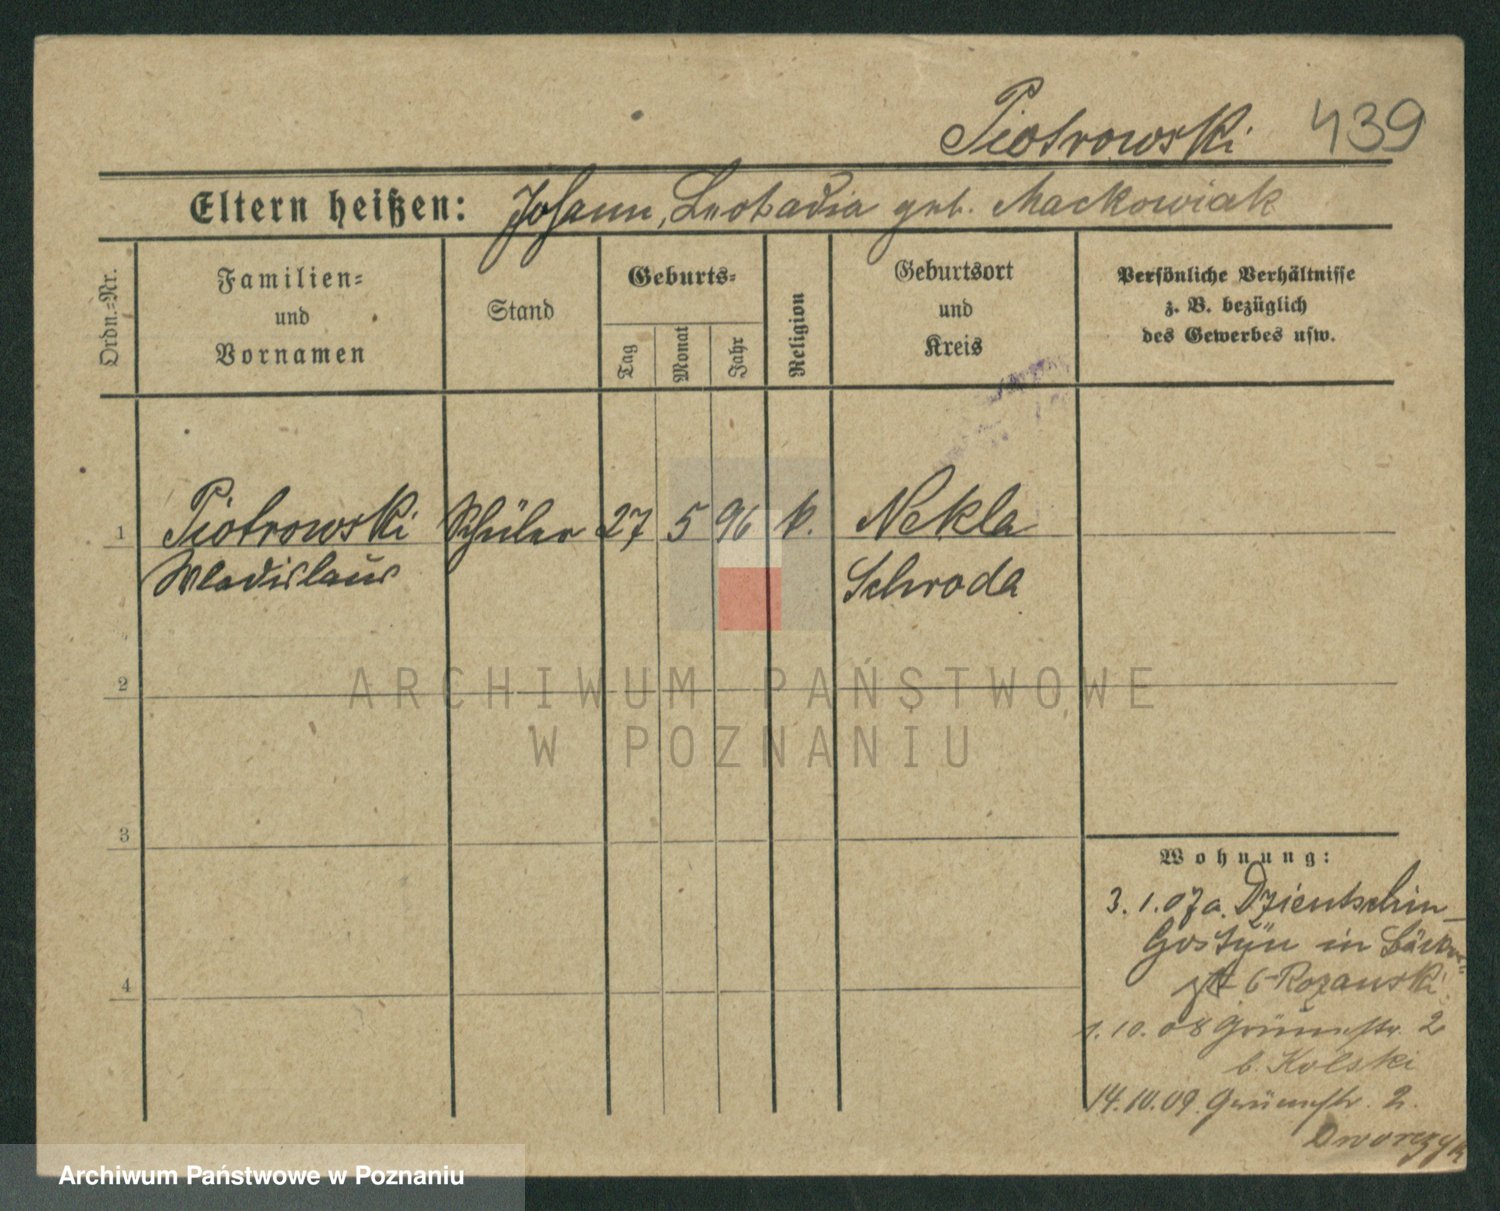 Piotrowski 439
Eltern heißen: Johann, Leokadia geb. Mackowiak
Ordn.-Nr.
Familien-
und
Vornamen
Stand
Geburts-
Tag
Monat
Jahr
Religion
Geburtsort
und
Kreis
Persönliche Verhältnisse
z. B. bezüglich
des Gewerbes usw.
1 Piotrowski Schüler 27 5 96 k. Nekla
Wladislaus Schroda
2
3
4
Wohnung:
3. 1. 07 a. Dzientschin
Gostÿn in Bäcker-
6 Rozanski
1. 10. 08 Grünestr. 2
b. Kolski
14. 10. 09. Grünestr. 2.
Dworczyk
ARCHIWUM PAŃSTWOWE
W POZNANIU
Archiwum Państwowe w Poznaniu